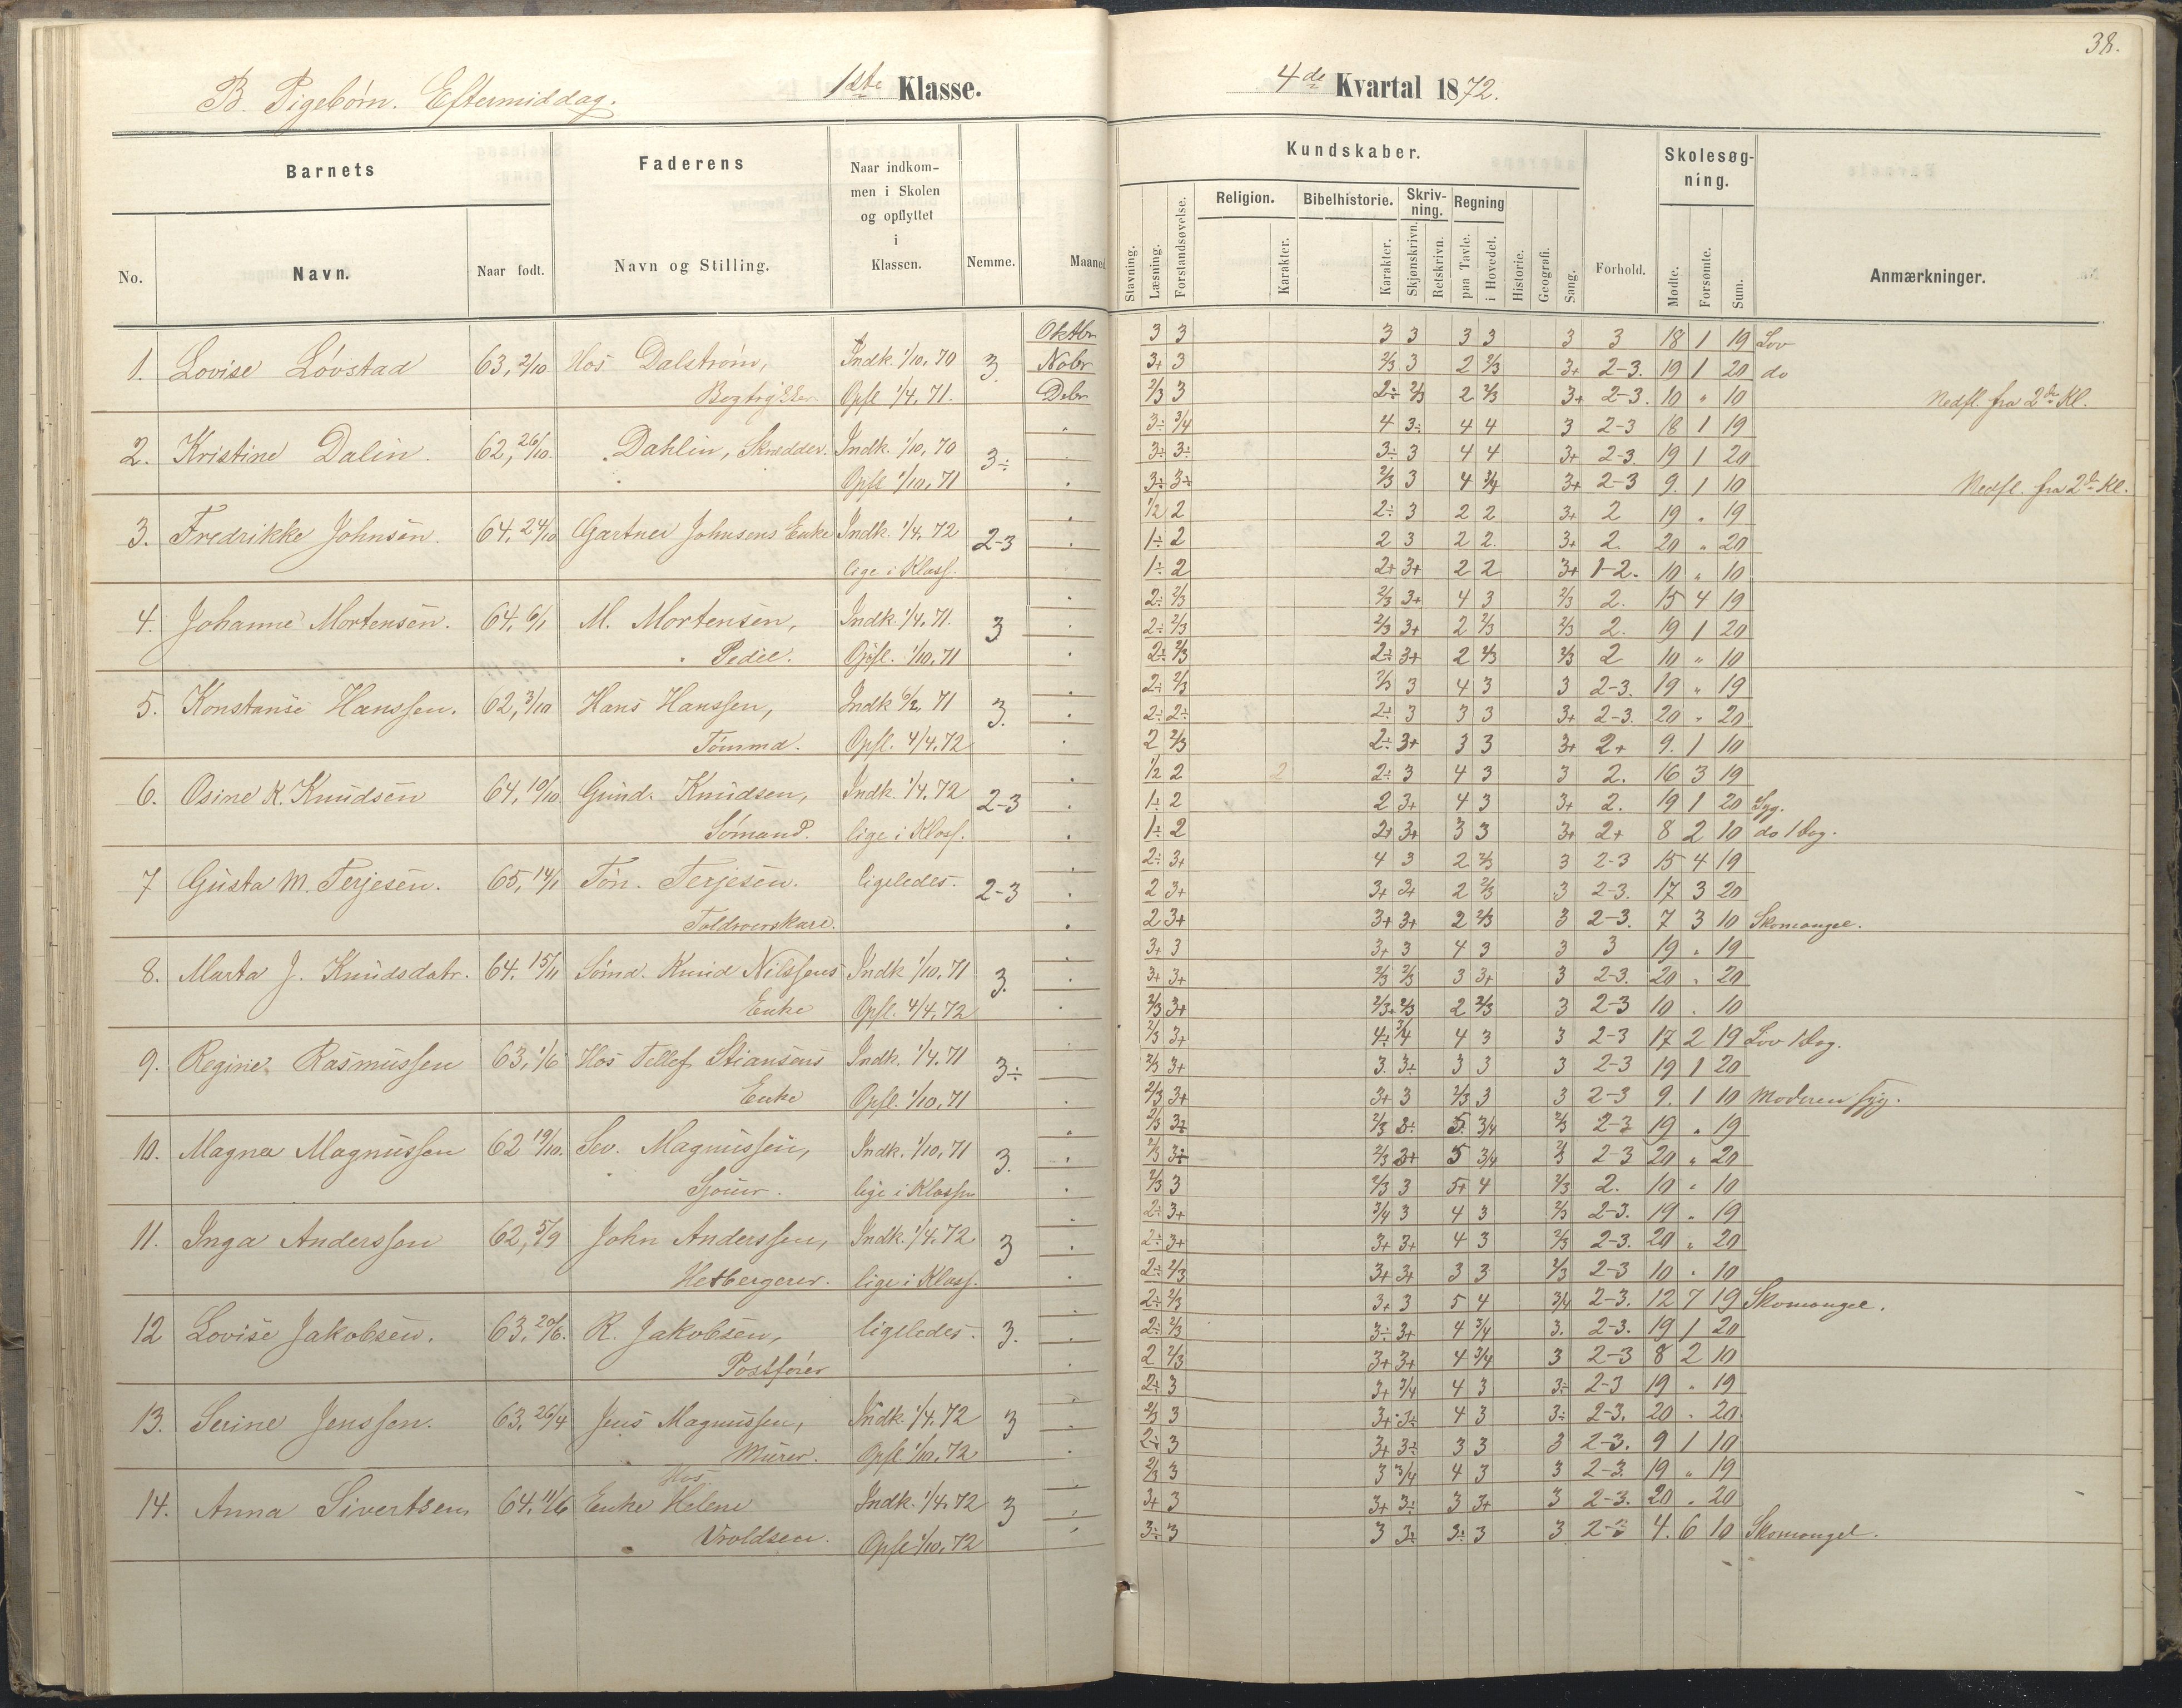 38.
B. Pigebørn. Eftermiddag. 1ste Klasse. 4de Kvartal 1872.
Barnets
Faderens
Naar indkom-
men i Skolen
og opflyttet
i
Klassen.
Nemme.
Maaned
Kundskaber.
Skolesøg-
ning.
No.
Navn.
Naar født.
Navn og Stilling.
Stavning.
Læsning.
Forstandsøvelse.
Religion.
Karakter.
Bibelhistorie.
Karakter.
Skriv-
ning.
Skjønskrivn.
Retskrivn.
Regning
paa Tavle.
i Hovedet.
Historie.
Geografi.
Sang.
Forhold.
Mødte.
Forsømte.
Sum.
Anmærkninger.
Oktbr 3 3 3 3 3 3 3 3 18 1 19 Lov
1. Lovise Løvstad 63, 2/10 Hos Dalstrøm, Indk. 1/10, 70 3. Nobr 3+ 3 2/3 3 2 2/3 3+ 2-3. 19 1 20 do
Bogtrykker Opfl. 1/4, 71. Debr 2/3 3 2÷ 2/3 2 2/3 3+ 2-3. 10 " 10 Nedfl. fra 2de Kl.
3÷ 3/4 4 3÷ 4 4 3 2-3 18 1 19
2. Kristine Dalin. 62, 26/10. Dahlin, Skrædder. Indk. 1/10, 70 3÷ 3÷ 3÷ 3÷ 3 4 4 3+ 2-3. 19 1 20
Opfl. 1/10, 71 3÷ 3÷ 2/3 3 4 3/4 3+ 2-3 9. 1 10 Nedfl. fra 2de Kl.
1/2 2 2÷ 3 2 2 3+ 2 19 " 19
3. Fredrikke Johnsen. 64, 24/10 Gartner Johnsens Enke Indk. 1/4, 72 2-3 1÷ 2 2 3 2 2. 3+ 2. 20 " 20
lige i Klass. 1÷ 2 2+ 3+ 2 2 3+ 1-2. 10 " 10
2÷ 2/3 2/3 3+ 4 3 2/3 2. 15 4 19
4. Johanne Mortensen. 64, 6/1 M. Mortensen, Indk. 1/4, 71. 3 2÷ 2/3 2/3 3+ 2 2/3 2/3 2. 19 1 20
Pedel. Opfl. 1/10, 71 2÷ 2/3 2÷ 3+ 2 2/3 2/3 2 10 " 10
2÷ 2/3 2/3 3 4 3 3 2-3. 19 " 19
5. Konstanse Hanssen. 62, 3/10 Hans Hanssen, Indk 6/2, 71 3. 2÷ 2÷ 2÷ 3 3 3 3+ 2-3. 20 " 20
Tømmd. Opfl. 4/4, 72 2 2/3 2÷ 3+ 3 3 3+ 2+ 9. 1 10
1/2 2 2 2÷ 3 4 3 3 2. 16 3 19
6. Osine K. Knudsen 64, 10/10. Gund. Knudsen, Indk. 1/4, 72 2-3 1÷ 2 2 3+ 4 3 3+ 2. 19 1 20 Syg.
Sømand. lige i Klass. 1÷ 2 2+ 3+ 3 3 3+ 2+ 8 2 10 do 1 Dag.
2÷ 3+ 4 3 2 2/3 3 2-3 15 4 19
7 Gusta M. Terjesen. 65, 14/1 Tøn. Terjesen. ligeledes. 2-3 2 3+ 3+ 3+ 2 2/3 3 2-3. 17 3 20
2 3+ 3+ 3+ 2 2/3 3 2-3. 7 3 10 Skomangel.
3+ 3 3+ 3 4 3 3 3 19 " 19
8. Marta J. Knudsdatr. 64. 15/11 Sømd. Knud Nilssens Indk 1/10, 71 3. 3+ 3+ 2/3 2/3 3 3+ 3 2-3. 20 " 20
Enke Opfl. 4/4, 72 2/3 3+ 2/3+ 2/3 2 2/3 3 2-3 10 " 10
2/3 3+ 4÷ 3/4 4 3 3 2-3 17 2 19 Lov 1 Dag.
9. Regine Rasmussen 63, 1/6 Hos Tellef Stiansens Indk. 1/4, 71 3÷ 2/3 3+ 3. 3+ 3 3 3 2-3 19 1 20
Enke Opfl. 1/10, 71 2/3 3+ 3+ 3 2/3 3 3 2-3 9. 1 10 Moderen syg.
2/3 3÷ 2/3 3÷ 5. 3/4 2/3 2-3 19 " 19
10. Magna Magnussen 62 19/10. Sev. Magnussen, Indk. 1/10, 71 3. 2/3 3÷ 2/3 3+ 5 3/4 2/3 2-3 20 " 20
lige i Klassen 2/3 3 2/3 3 5+ 4 2/3 2. 10 " 10
2÷ 3+ 3/4 3 4 3 2/3 2-3. 19 " 19
11. Inga Anderssen 62, 5/9 John Anderssen, Indk. 1/4, 72. 3 2÷ 3+ 3+ 3+ 4 3 2/3 2-3. 20 " 20
lige i Klass. 2÷ 2/3 3+ 3+ 3 3 2/3 2-3 10 " 10
2÷ 2/3 3+ 3 5 4 3/4 2-3. 12 7 19 Skomangel.
12 Lovise Jakobsen. 63, 20/6. R. Jakobsen, ligeledes. 3. 2÷ 2/3 3÷ 3+ 4 3/4 3. 2-3. 19 1 20
Postfører 2 2/3 3+ 3+ 4 3/4 3 2-3 8 2 10
2÷ 3 3+ 3/4 4 3 3÷ 2-3 19 " 19
13. Serine Jenssen. 63, 26/4 Jens Magnussen, Indk. 1/4, 72 3 2/3 3 3+ 3÷ 4 3 3÷ 2-3. 20 " 20.
Murer. Opfl. 1/10, 72 2÷ 3 3+ 3÷ 3 3 3 2-3. 9 1 10
Hos 2/3 3 3 3/4 4 3 3 2-3. 19 " 19
14. Anna Sivertsen 64, 11/6 Enke Helene Indk. 1/4, 72 3 3+ 3 3+ 3÷ 3 3+ 3 2-3. 20 " 20
Vroldsen. Opfl 1/10, 72 3÷ 3 3 3÷ 3÷ 3 3 2-3 4. 6 10 Skomangel.